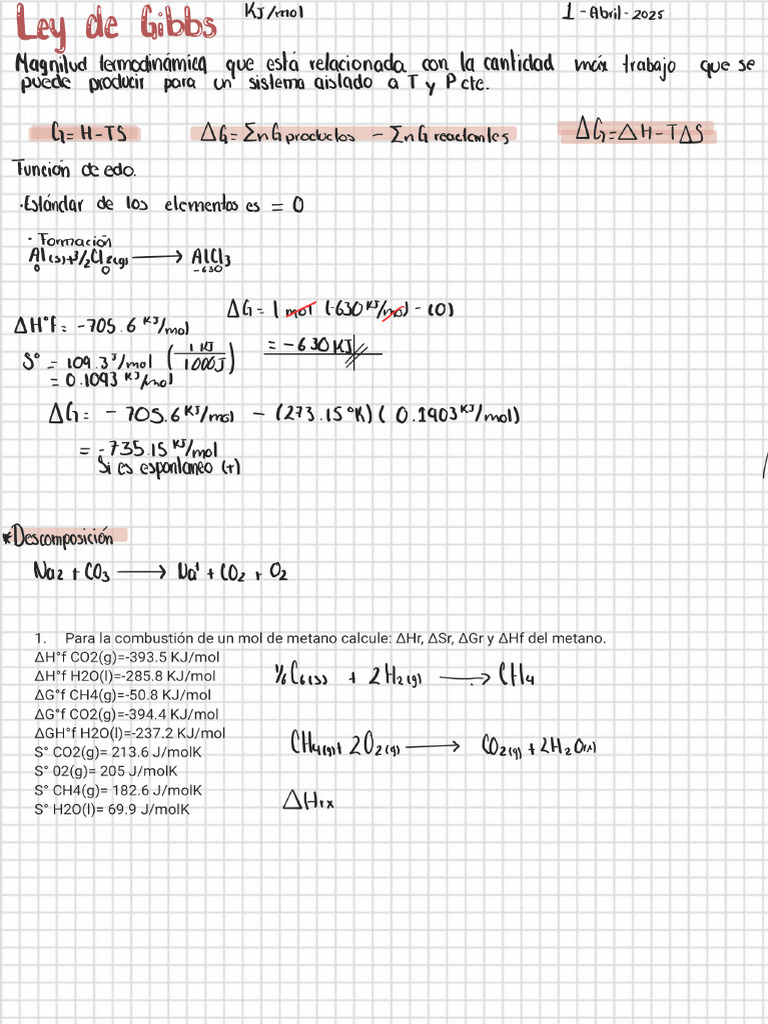 Ley de Gibbs KJ/mol 1-Abril-2025
Magnitud termodinámica que está relacionada con la cantidad máx trabajo que se
puede producir para un sistema aislado a T y P cte.
G=H-TS ΔG=ΣnG productos - ΣnG reactantes ΔG=ΔH-TΔS
Función de edo.
·Estándar de los elementos es = 0
· Formación
Al(s)+3/2Cl2(g) → AlCl3
0 0 -630
ΔG = 1 mol (-630 KJ/mol) - (0)
ΔH°f = -705.6 KJ/mol
= -630 KJ
S° = 109.3 J/mol (1 KJ/1000J)
= 0.1093 KJ/mol
ΔG = - 705.6 KJ/mol - (273.15°K) ( 0.1903 KJ/mol)
= -735.15 KJ/mol
Si es espontaneo (+)
*Descomposición
Na2 + CO3 → Na⁺ + CO2 + O2
1. Para la combustión de un mol de metano calcule: ΔHr, ΔSr, ΔGr y ΔHf del metano.
ΔH°f CO2(g)=-393.5 KJ/mol
ΔH°f H2O(l)=-285.8 KJ/mol
ΔG°f CH4(g)=-50.8 KJ/mol
ΔG°f CO2(g)=-394.4 KJ/mol
ΔGH°f H2O(l)=-237.2 KJ/mol
S° CO2(g)= 213.6 J/molK
S° 02(g)= 205 J/molK
S° CH4(g)= 182.6 J/molK
S° H2O(l)= 69.9 J/molK
+ 2H2(g) → CH4
CH4(g)+ 2O2(g) → CO2(g) + 2H2O(l)
ΔHrx